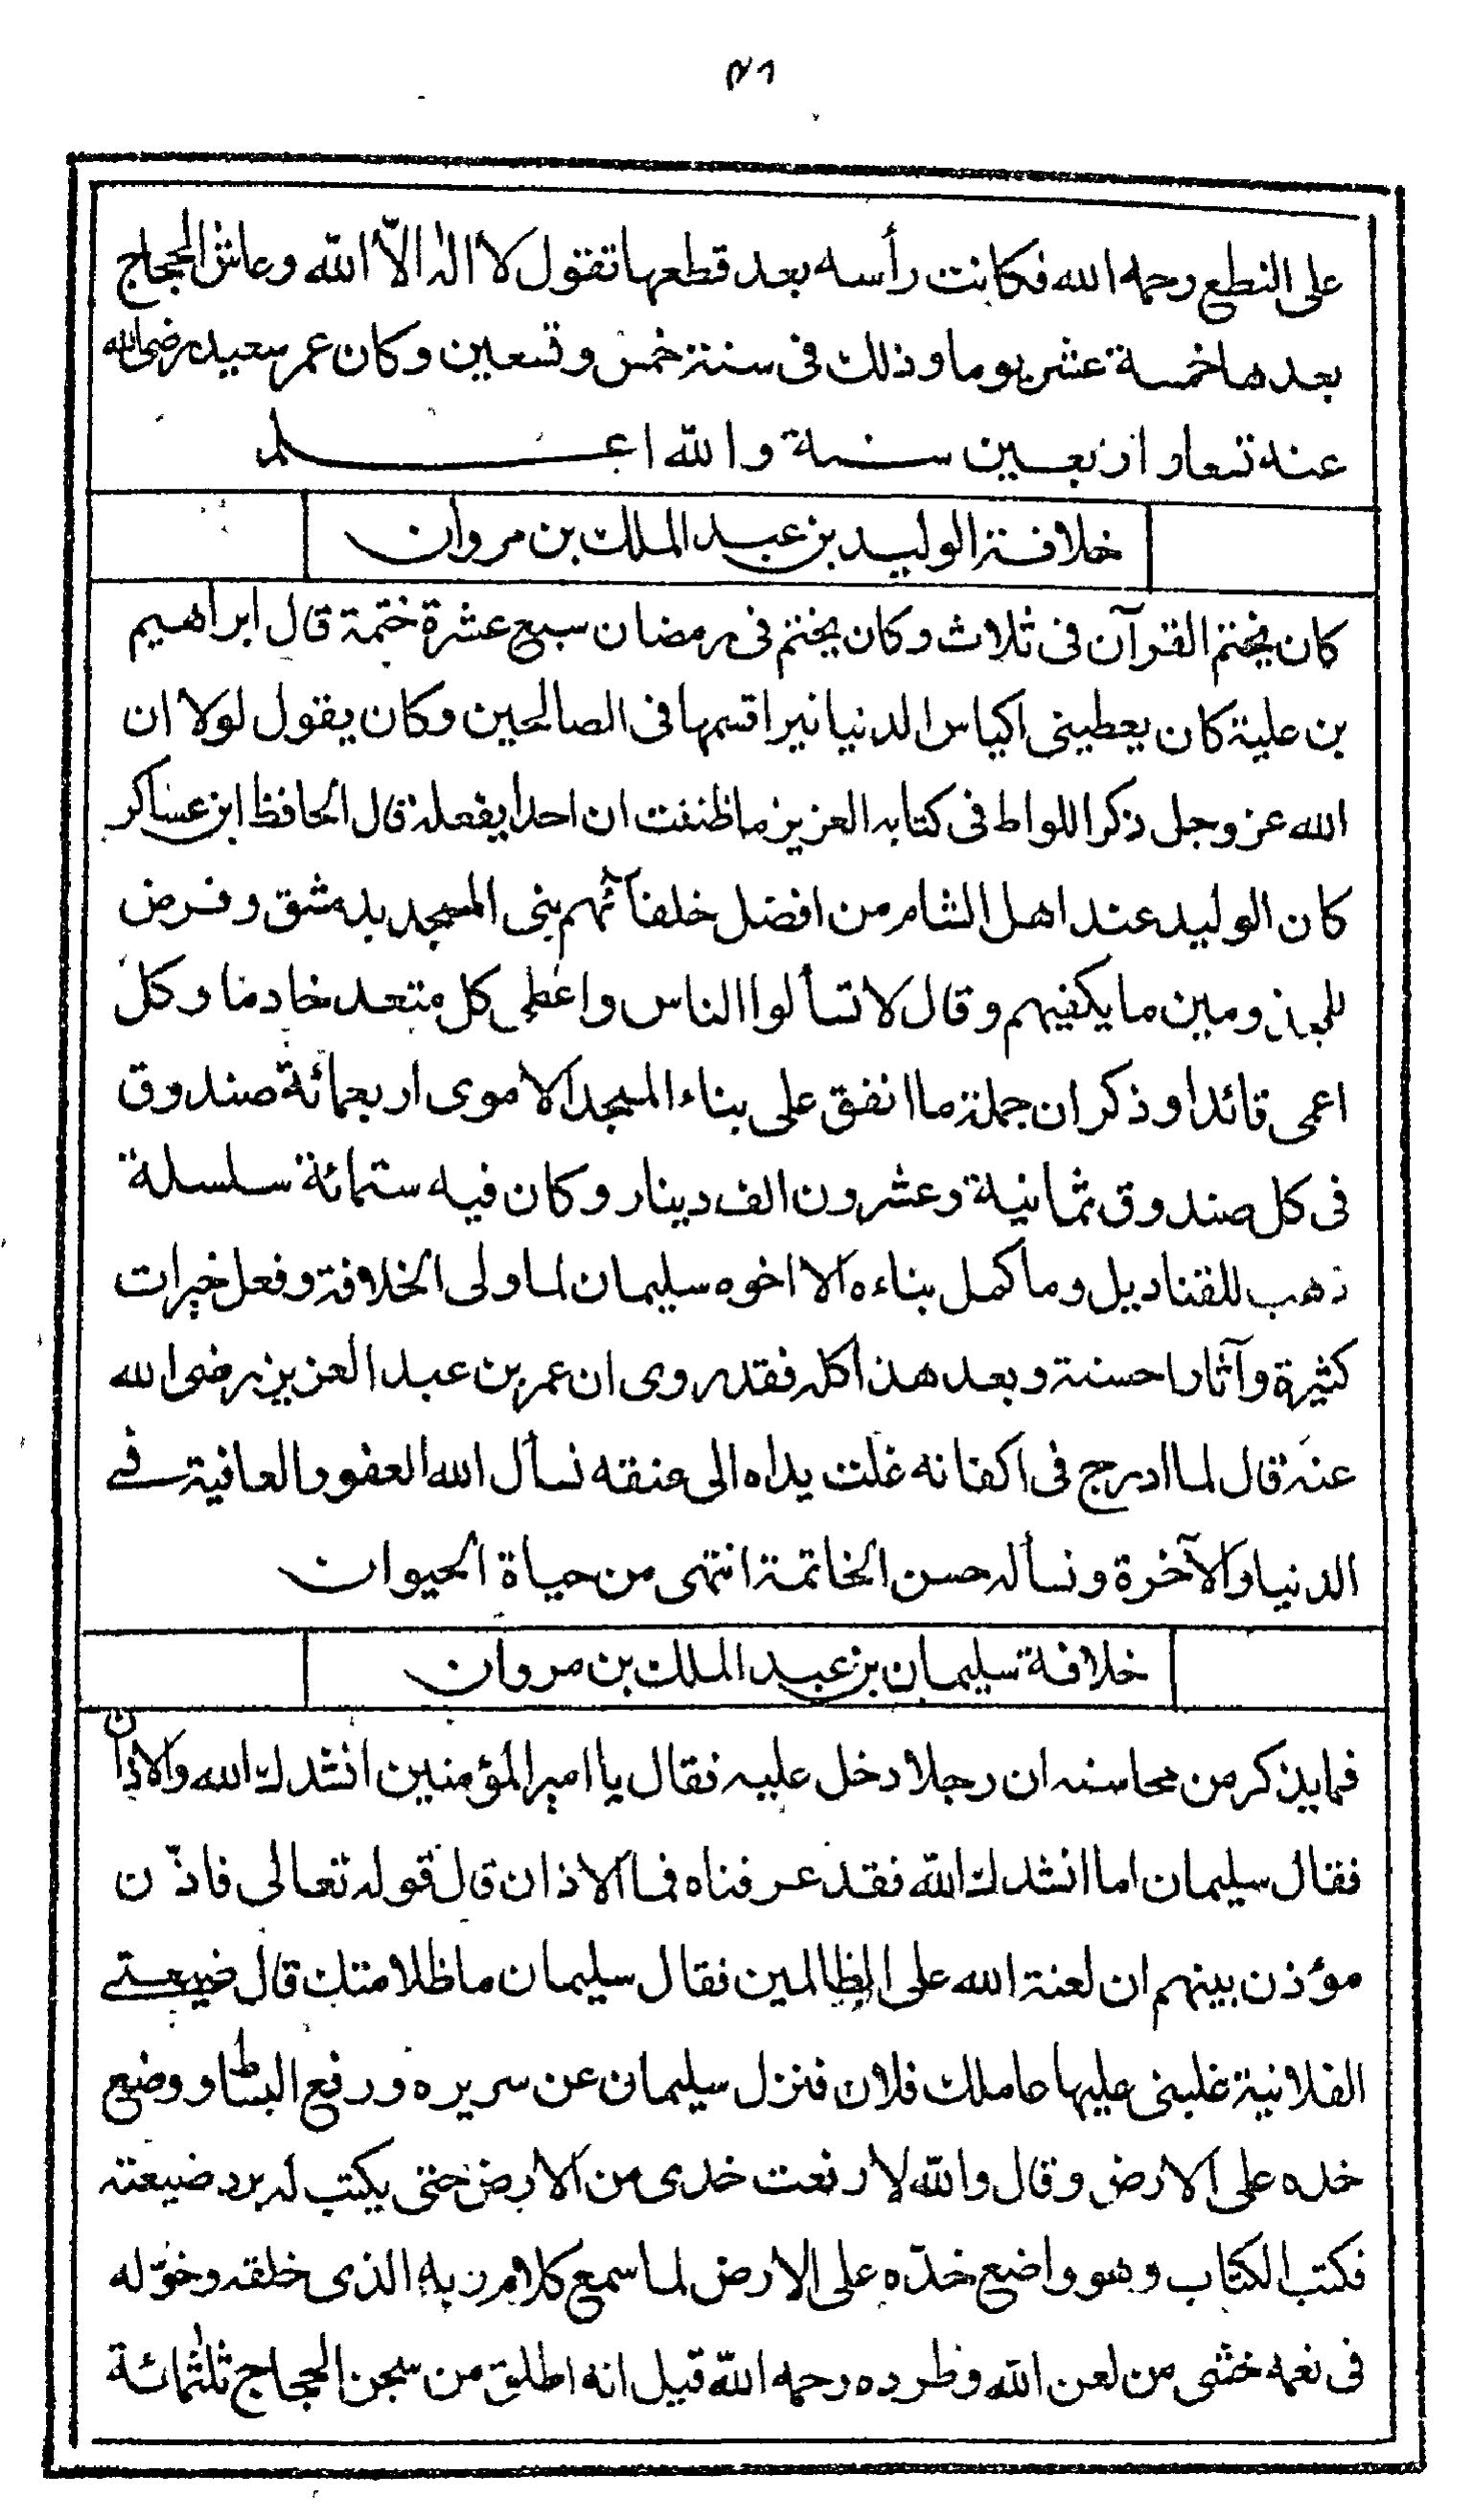 على النطع رحمه الله فكانت رأسه بعد قطعها تقول لا اله الاّ الله وعاش الحجاج
بعدها خمسة عشر يوما وذلك فى سنة خمس وتسعين وكان عمر سعيد رضى الله
عنه تسعا واربعين سنة والله اعلم
خلافة الوليد بن عبد الملك بن مروان
كان يختم القرآن فى ثلاث وكان يختم فى رمضان سبع عشرة ختمة قال ابراهيم
بن علية كان يعطينى اكياس الدنيانير اقسمها فى الصالحين وكان يقول لولا ان
الله عز وجل ذكر اللواط فى كتابه العزيز ما ظننت ان احدا يفعله قال الحافظ ابن عساكر
كان الوليد عند اهل الشام من افضل خلفآئهم بنى المسجد بدمشق وفرض
للمجذومين ما يكفيهم وقال لا تسألوا الناس واعطى كل مقعد خادما وكل
اعمى قائدا وذكر ان جملة ما انفق على بناء المسجد الاموى اربعمائة صندوق
فى كل صندوق ثمانية وعشرون الف دينار وكان فيه ستمائة سلسلة
ذهب للقناديل وما كمل بناءه الا اخوه سليمان لما ولى الخلافة وفعل خيرات
كثيرة وآثارا حسنة وبعد هذا كله فقد روى ان عمر بن عبد العزيز رضى الله
عنه قال لما ادرج فى اكفانه غلت يداه الى عنقه نسأل الله العفو والعافية فى
الدنيا والآخرة ونسأله حسن الخاتمة انتهى من حياة الحيوان
خلافة سليمان بن عبد الملك بن مروان
فما يذكر من محاسنه ان رجلا دخل عليه فقال يا امير المؤمنين انشدك الله والاذان
فقال سليمان اما انشدك الله فقد عرفناه فما الاذان قال قوله تعالى فاذّن
مؤذن بينهم ان لعنة الله على الظالمين فقال سليمان ما ظلامتك قال ضيعتى
الفلانية غلبنى عليها عاملك فلان فنزل سليمان عن سريره ورفع البساط ووضع
خده على الارض وقال والله لا رفعت خدى من الارض حتى يكتب له برد ضيعته
فكتب الكتاب وهو واضع خدّه على الارض لما سمع كلام ربه الذى خلقه وخوّله
فى نعمه خشى من لعن الله وطرده رحمه الله قيل انه اطلق من سجن الحجاج ثلثمائة